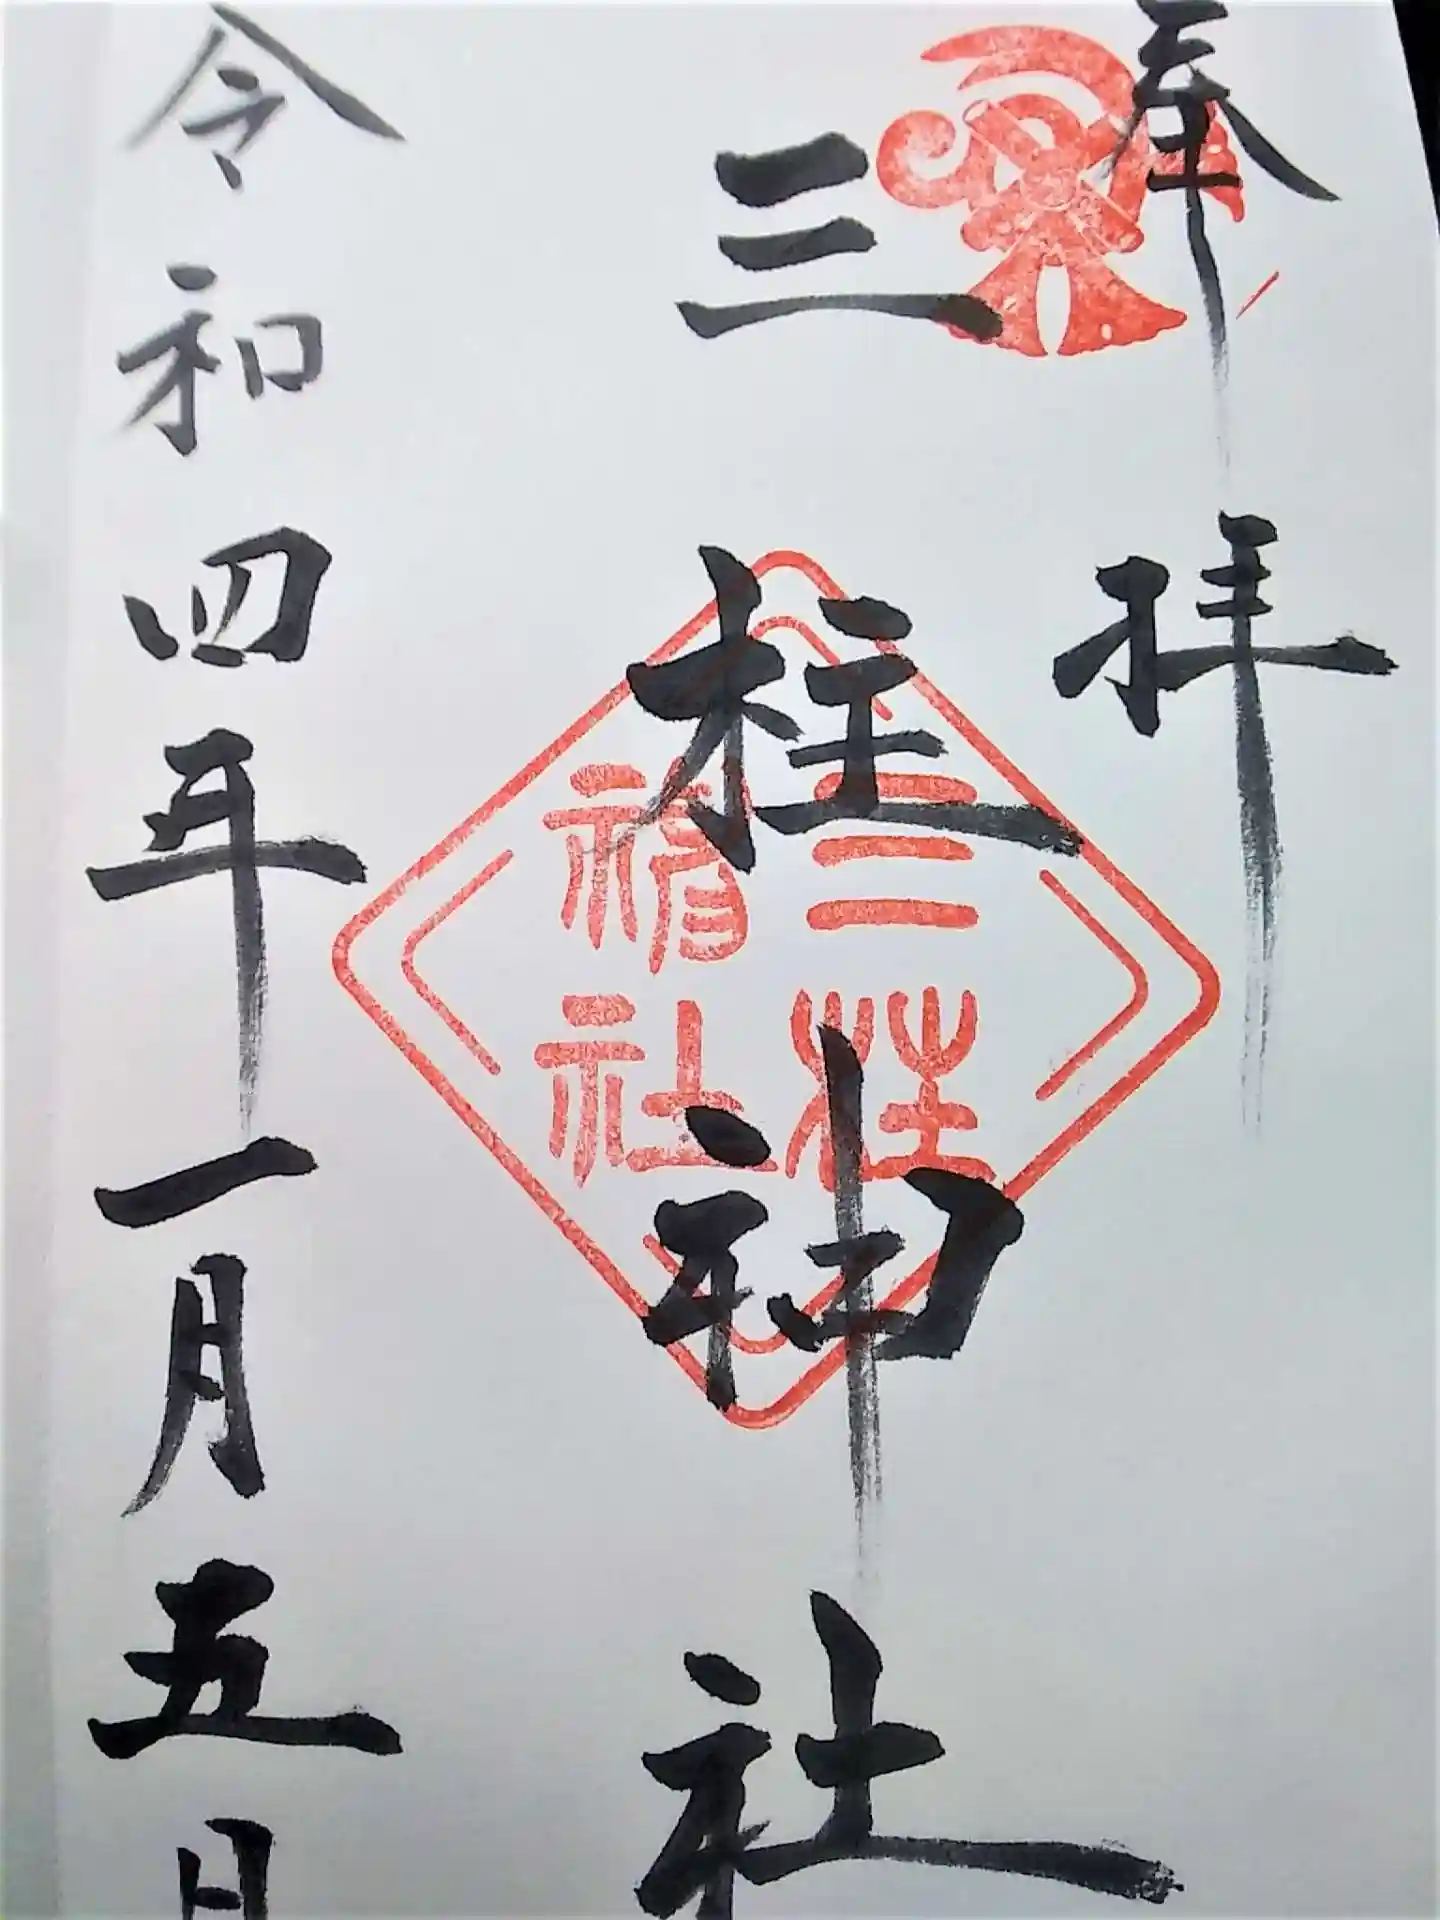 奉拝
三柱神社
三柱
神社
令和四年一月五日